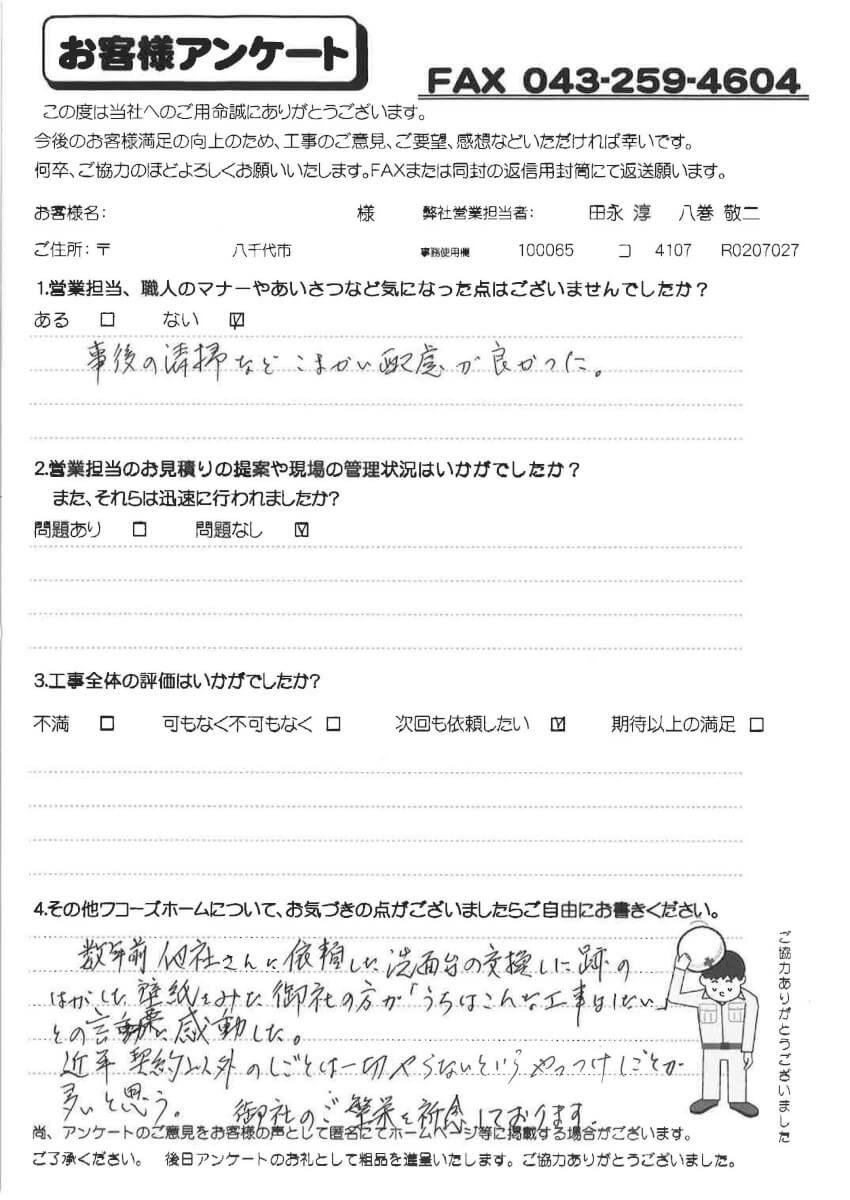 お客様アンケート
FAX 043-259-4604
この度は当社へのご用命誠にありがとうございます。
今後のお客様満足の向上のため、工事のご意見、ご要望、感想などいただければ幸いです。
何卒、ご協力のほどよろしくお願いいたします。FAXまたは同封の返信用封筒にて返送願います。
お客様名: 様 弊社営業担当者: 田永 淳 八巻 敬二
ご住所:〒 八千代市 事務使用欄 100065 コ 4107 R0207027
1.営業担当、職人のマナーやあいさつなど気になった点はございませんでしたか?
ある □ ない ☑
事後の清掃などこまかい配慮が良かった。
2.営業担当のお見積りの提案や現場の管理状況はいかがでしたか?
また、それらは迅速に行われましたか?
問題あり □ 問題なし ☑
3.工事全体の評価はいかがでしたか?
不満 □ 可もなく不可もなく □ 次回も依頼したい ☑ 期待以上の満足 □
4.その他ワコーズホームについて、お気づきの点がございましたらご自由にお書きください。
数年前他社さんに依頼した洗面台の交換した跡の
はがした壁紙をみた御社の方が「うちはこんな工事はしない」
その言葉に感動した。
近年契約以外のしごとは一切やらないというやっつけしごとが
多いと思う。 御社のご繁栄を祈念しております。
尚、アンケートのご意見をお客様の声として匿名にてホームページ等に掲載する場合がございます。
ご了承ください。 後日アンケートのお礼として粗品を進呈いたします。ご協力ありがとうございました。
ご協力ありがとうございました